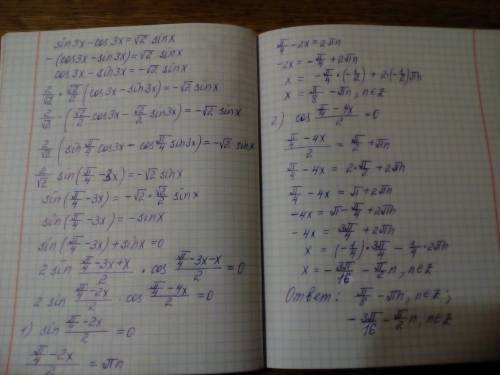 sin3x-cos3x=√2 sinx
-(cos3x-sin3x)=√2 sinx
cos3x-sin3x=-√2 sinx
2/√2 · √2/2 (cos3x-sin3x)=-√2 sinx
2/√2 · (√2/2 cos3x-√2/2 sin3x)=-√2 sinx
2/√2 (sin π/4 cos3x-cos π/4 sin3x)=-√2 sinx
2/√2 sin(π/4-3x)=-√2 sinx
sin(π/4-3x)=-√2·√2/2 sinx
sin(π/4-3x)=-sinx
sin(π/4-3x)+sinx=0
2 sin (π/4-3x+x)/2 · cos (π/4-3x-x)/2 =0
2 sin (π/4-2x)/2 · cos (π/4-4x)/2 =0
1) sin (π/4-2x)/2 =0
(π/4-2x)/2 =πn
π/4-2x=2πn
-2x=-π/4+2πn
x=-π/4·(-1/2)+2·(-1/2)πn
x=π/8-πn, n∈Z
2) cos (π/4-4x)/2 =0
(π/4-4x)/2 =π/2+πn
π/4-4x=2·π/2+2πn
π/4-4x=π+2πn
-4x=π-π/4+2πn
-4x=3π/4+2πn
x=(-1/4)·3π/4-1/4·2πn
x=-3π/16-π/2 n, n∈Z
Ответ: π/8-πn, n∈Z;
-3π/16-π/2 n, n∈Z